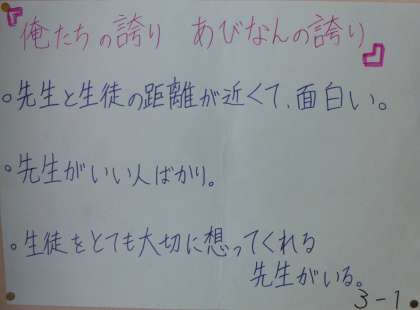 『俺たちの誇り あびなんの誇り』
。先生と生徒の距離が近くて、面白い。
。先生がいい人ばかり。
。生徒をとても大切に想ってくれる
先生がいる。
3-1